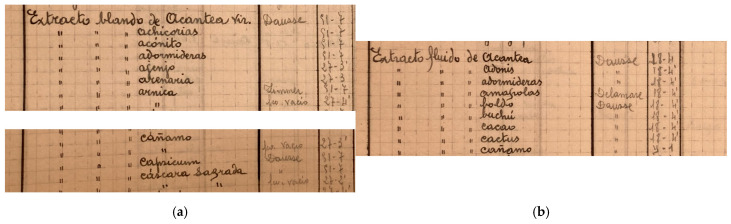 Extracto blando de Acantea vir. Dausse 31-7
" " " achicorias " 31-7
" " " acónito " 31-7
" " " adormideras " 31-7
" " " ajenjo " 27-3'
" " " arenaria " 27-3
" " " arnica Zimmer 31-7
" " " " pr. vacio 27-4'
" " " cáñamo pr. vacio 27-3'
" " " " Dausse 31-7
" " " capsicum " 31-7
" " " cáscara sagrada " 31-7
" " " " " pr. vacio
(a)
Extracto fluido de Acantea Dausse 18-4'
" " " adonis " 18-4'
" " " adormideras " 18-4'
" " " amapolas Delamare 18-4'
" " " boldo Dausse 18-4'
" " " buchú " 18-4'
" " " cacao " 18-4'
" " " cactus " 18-4'
" " " cáñamo "
(b)